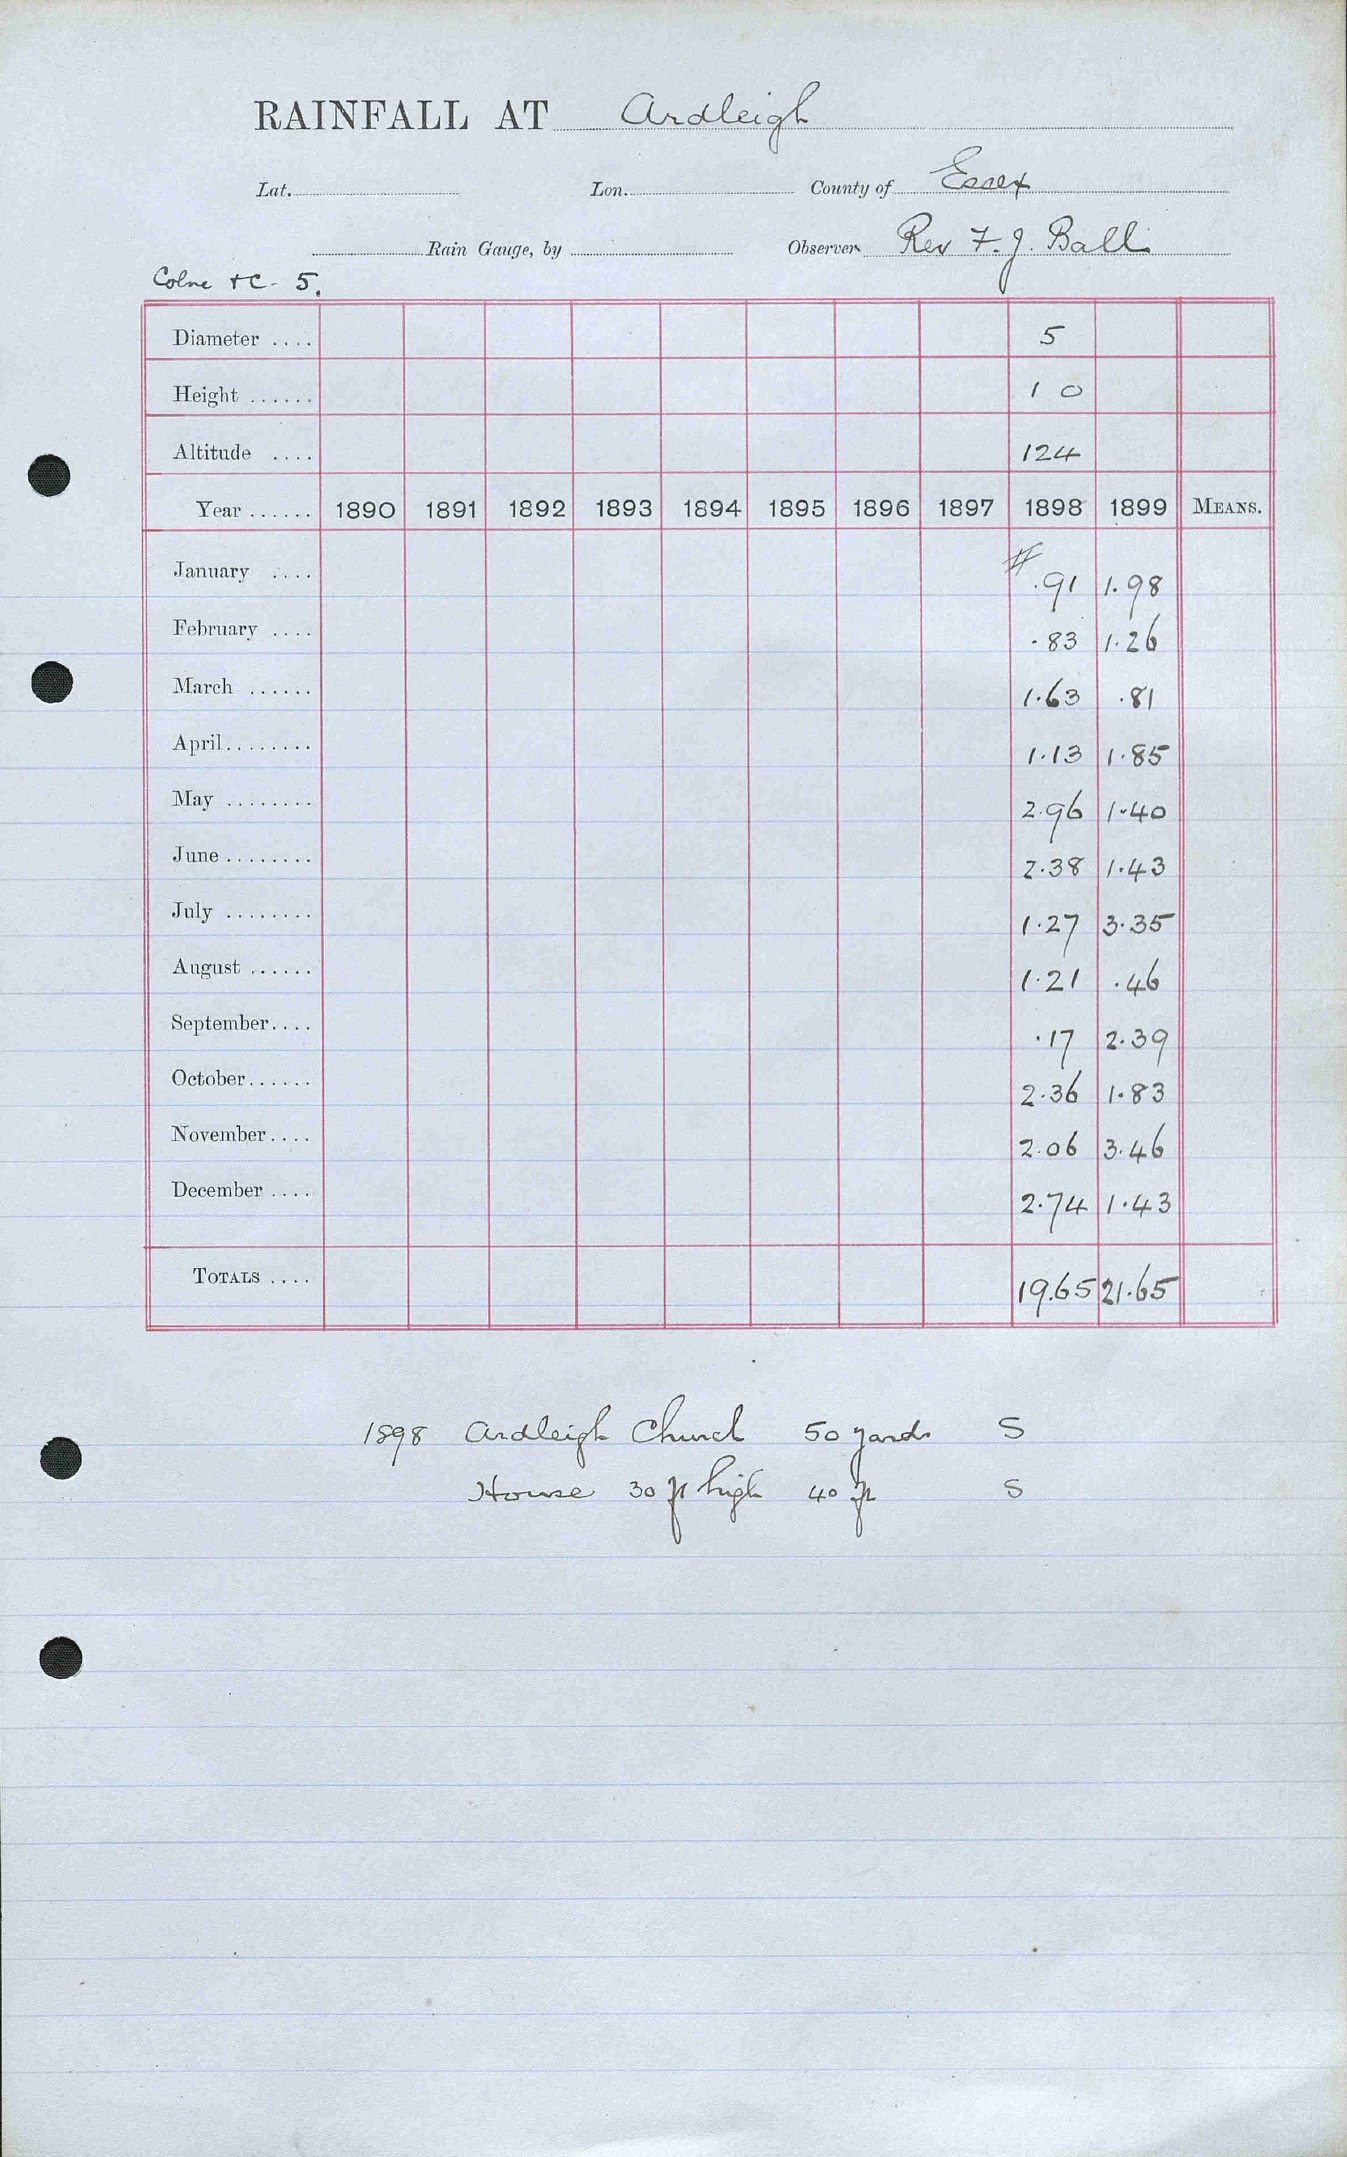 RAINFALL AT Ardleigh
Lat. Lon. County of Essex
Rain Gauge, by Observer Rev F. J. Ball
Colne + C - 5.
Diameter .... 5
Height ...... 1 0
Altitude .... 124
Year ...... 1890 1891 1892 1893 1894 1895 1896 1897 1898 1899 MEANS.
January .... # .91 1.98
February .... .83 1.26
March ...... 1.63 .81
April........ 1.13 1.85
May ........ 2.96 1.40
June ........ 2.38 1.43
July ........ 1.27 3.35
August ...... 1.21 .46
September.... .17 2.39
October...... 2.36 1.83
November.... 2.06 3.46
December .... 2.74 1.43
TOTALS .... 19.65 21.65
1898 Ardleigh Church 50 yards S
House 30 ft high 40 ft S